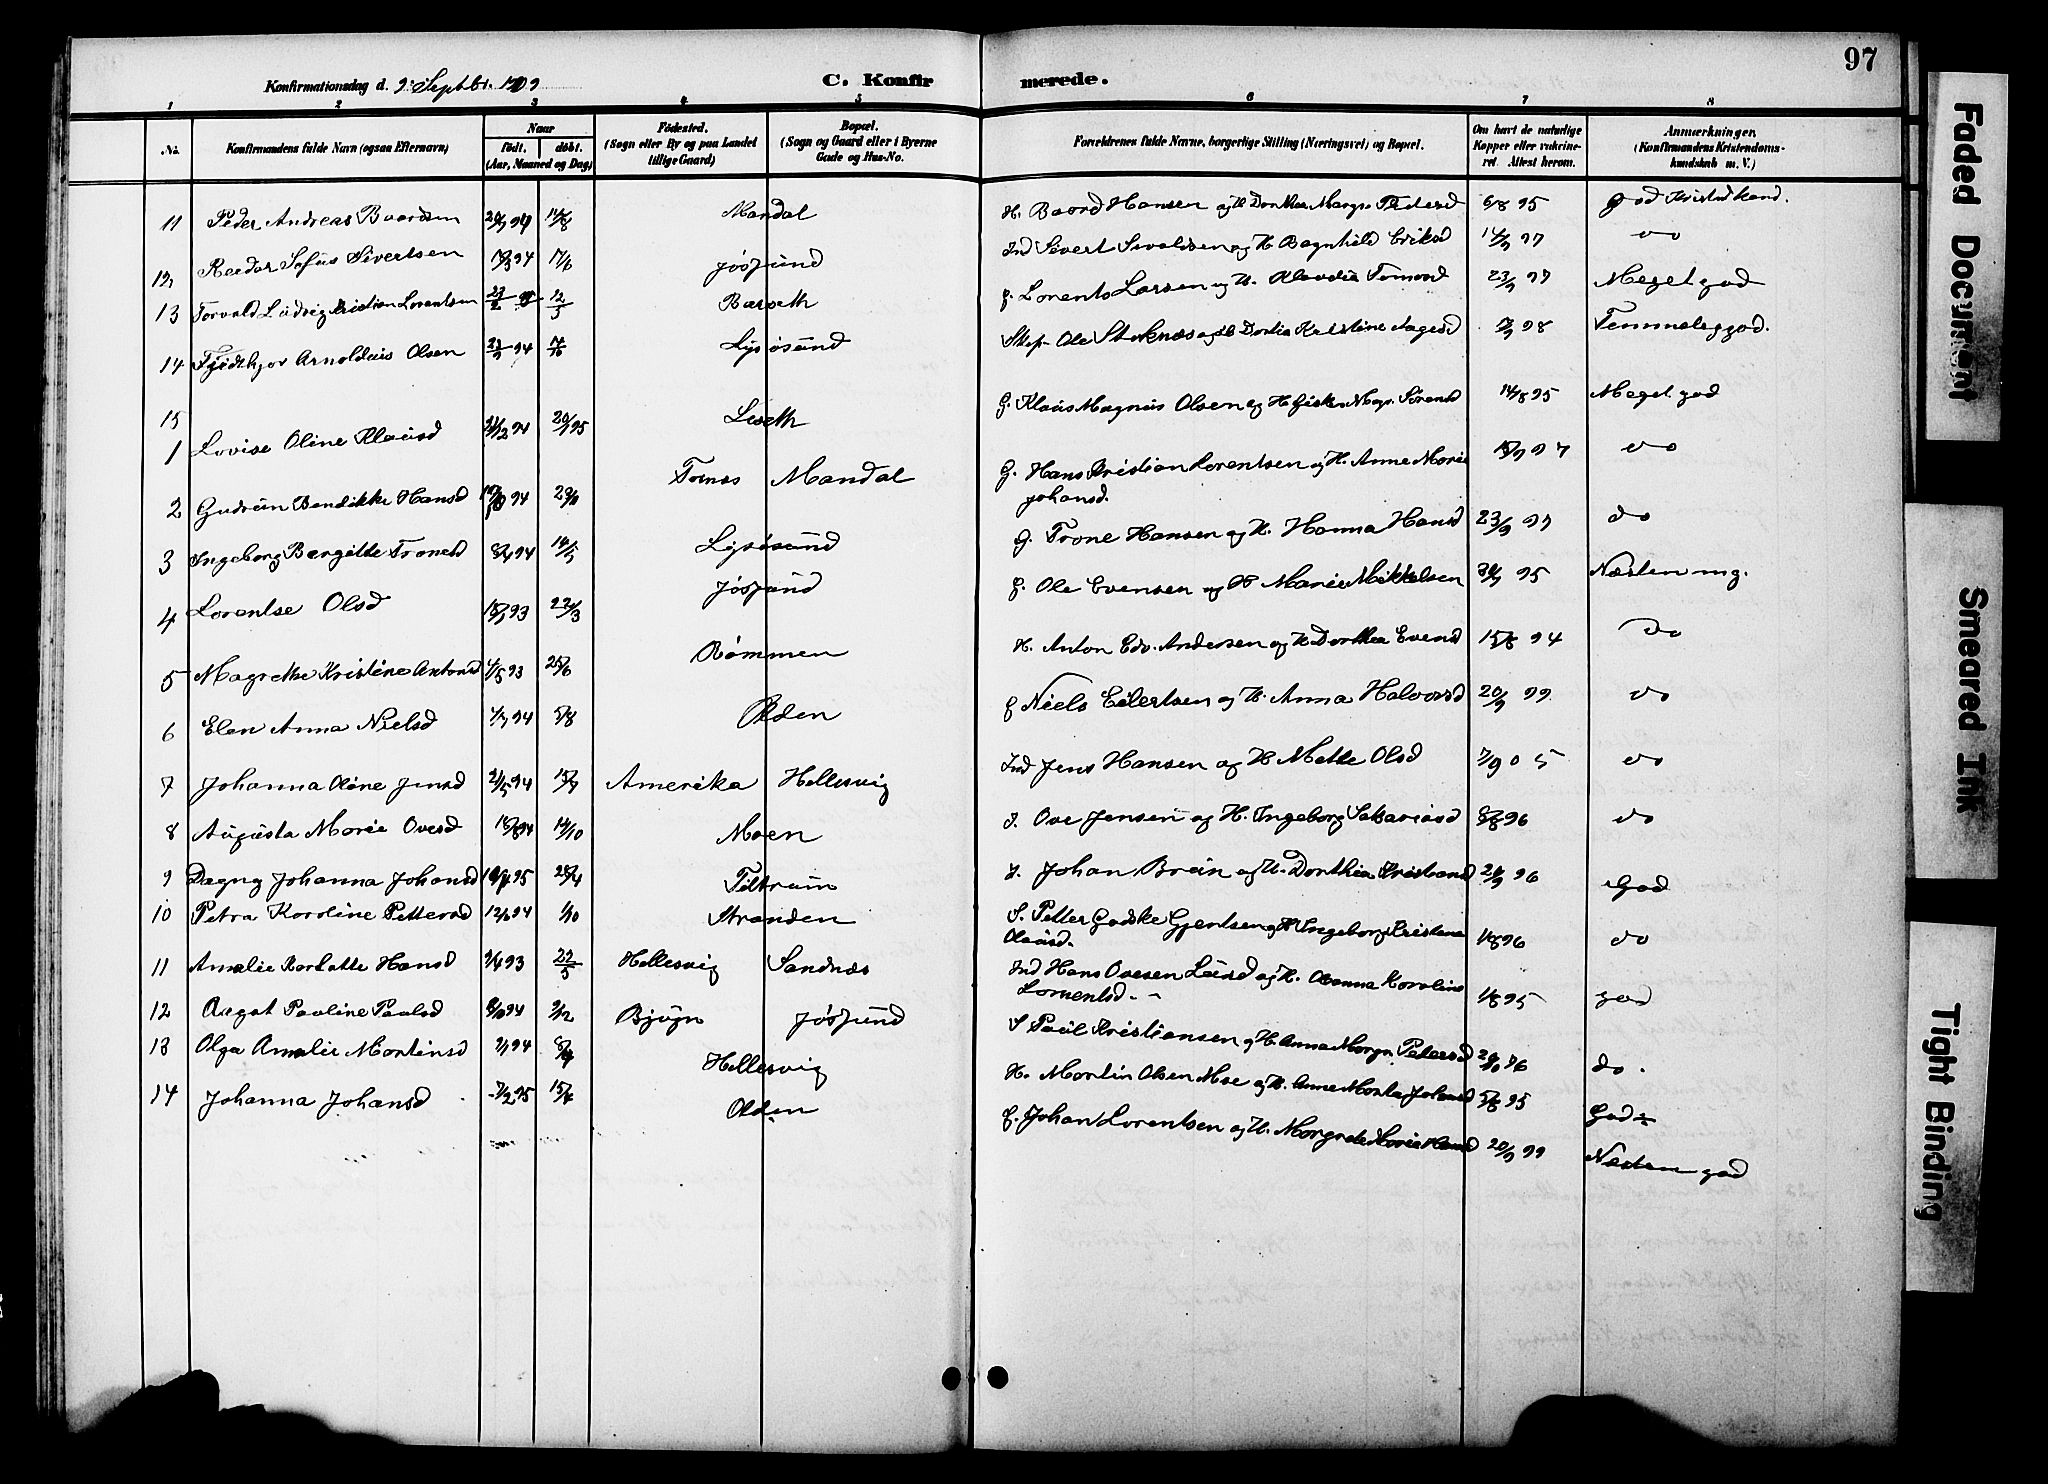 97
Konfirmationsdag d. 9. Septbr. 1909
C. Konfirmerede.
1 2 3 4 5 6 7 8
No.
Konfirmandens fulde Navn (ogsaa Efternavn)
Naar
født. døbt.
(Aar, Maaned og Dag)
Fødested.
(Sogn eller By og paa Landet
tillige Gaard)
Bopæl.
(Sogn og Gaard eller i Byerne
Gade og Hus-No.
Forældrenes fulde Navne, borgerlige Stilling (Næringsvei) og Bopæl.
Om havt de naturlige
Kopper eller vakcine-
ret. Attest herom.
Anmærkninger.
(Konfirmandens Kristendoms-
kundskab m. V.)
11 Peder Andreas Baardsen 94 14/8 Mandal H. Baard Hansen og H. Dorthea Margr. Pedersd 6/8 95 god Kristdkund.
12 Reidar Sofus Sivertsen 94 17/6 Jøssund Ind Sivert Sivaldsen og H. Ragnhild Eriksd 14/9 97 do
13 Torvald Ludvig Kristian Lorentsen 12/3 Barseth f. Lorents Larsen og H. Klaudia Tomasd 23/9 97 Meget god
14 Arnoldus Olsen 94 Lysøsund Skip. Ole Stoknæs og H. Dortia Kristine Aagesd 98 Temmelig god.
15
1 Lovise Oline Klausd 94 20/1 95 Leseth G. Klaus Magnus Olsen og H. Marg. Sørensd 14/8 95 Meget god
2 Gudrun Bendikke Hansd 94 Tornes Mandal G. Hans Kristian Lorentsen og H. Anne Marie
Johansd. 97 do
3 Ingeborg Bergitte Tronsd 94 14/5 Lysøsund G. Trone Hansen og H. Hanna Hansd 23/9 97 do
4 Lorentse Olsd 93 22/3 Jøssund f. Ole Evensen og H. Marie Mikkelsen 95 Næsten mg.
5 Magrethe Kristine Antonsd 4/5 93 25/6 Rømmen H. Anton Edv. Andersen og H. Dorthea Evensd 15/8 94 Do
6 Elen Anna Nielsd 94 5/8 Olden f Niels Eilertsen og H. Anna Halvorsd 20/9 99 do
7 Johanna Oline Jensd 2/5 94 15/7 Amerika Hellesvig Ind Jens Hansen og H. Mette Olsd 7/9 05 do
8 Augusta Marie Ovesd 94 14/10 Moen I. Ove Jensen og H. Ingeborg Sakariasd 96 do
9 Dagny Johanna Johansd 95 28/4 Teltrum I. Johan Brun og H. Dorthea Kristiansd 96 God
10 Petra Karoline Pettersd 94 1/10 Stranden S. Petter Godske Gjertsen og H. Ingeborg Kristine
Olausd. 96 do
11 Amalie Karlotte Hansd 93 22/5 Hellesvig Sandnæs Ind Hans Ovesen Lund og H. Karoline
Lorentsd. 95 god
12 Aagot Pauline Paulsd 94 9/12 Bjugn Jøssund S Paul Kristiansen og H. Anna Margr. Petersd 96 do.
13 Olga Amalie Martinsd 94 Hellesvig H. Martin Olsen Moe og H. Anne Marta Johansd 95 God
14 Johanna Johansd 7/2 95 15/4 Olden f. Johan Lorentsen og H. Margrete Marie Hansd 20/9 99 Næsten god
Faded Document
Smeared Ink
Tight Binding